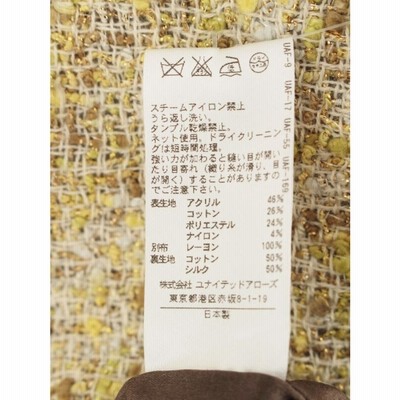 UAF-9 UAF-17 UAF-55 UAF-169
スチームアイロン禁止
うら返し洗い。
タンブル乾燥禁止。
ネット使用。ドライクリーニン
グは短時間処理。
強い力が加わると縫い目が開い
たり目寄れ（織り糸が滑り、目
が開く）することがありますの
でご注意下さい。
表生地 アクリル 46%
コットン 26%
ポリエステル 24%
ナイロン 4%
別布 レーヨン 100%
裏生地 コットン 50%
シルク 50%
株式会社 ユナイテッドアローズ
東京都港区赤坂8-1-19
日本製